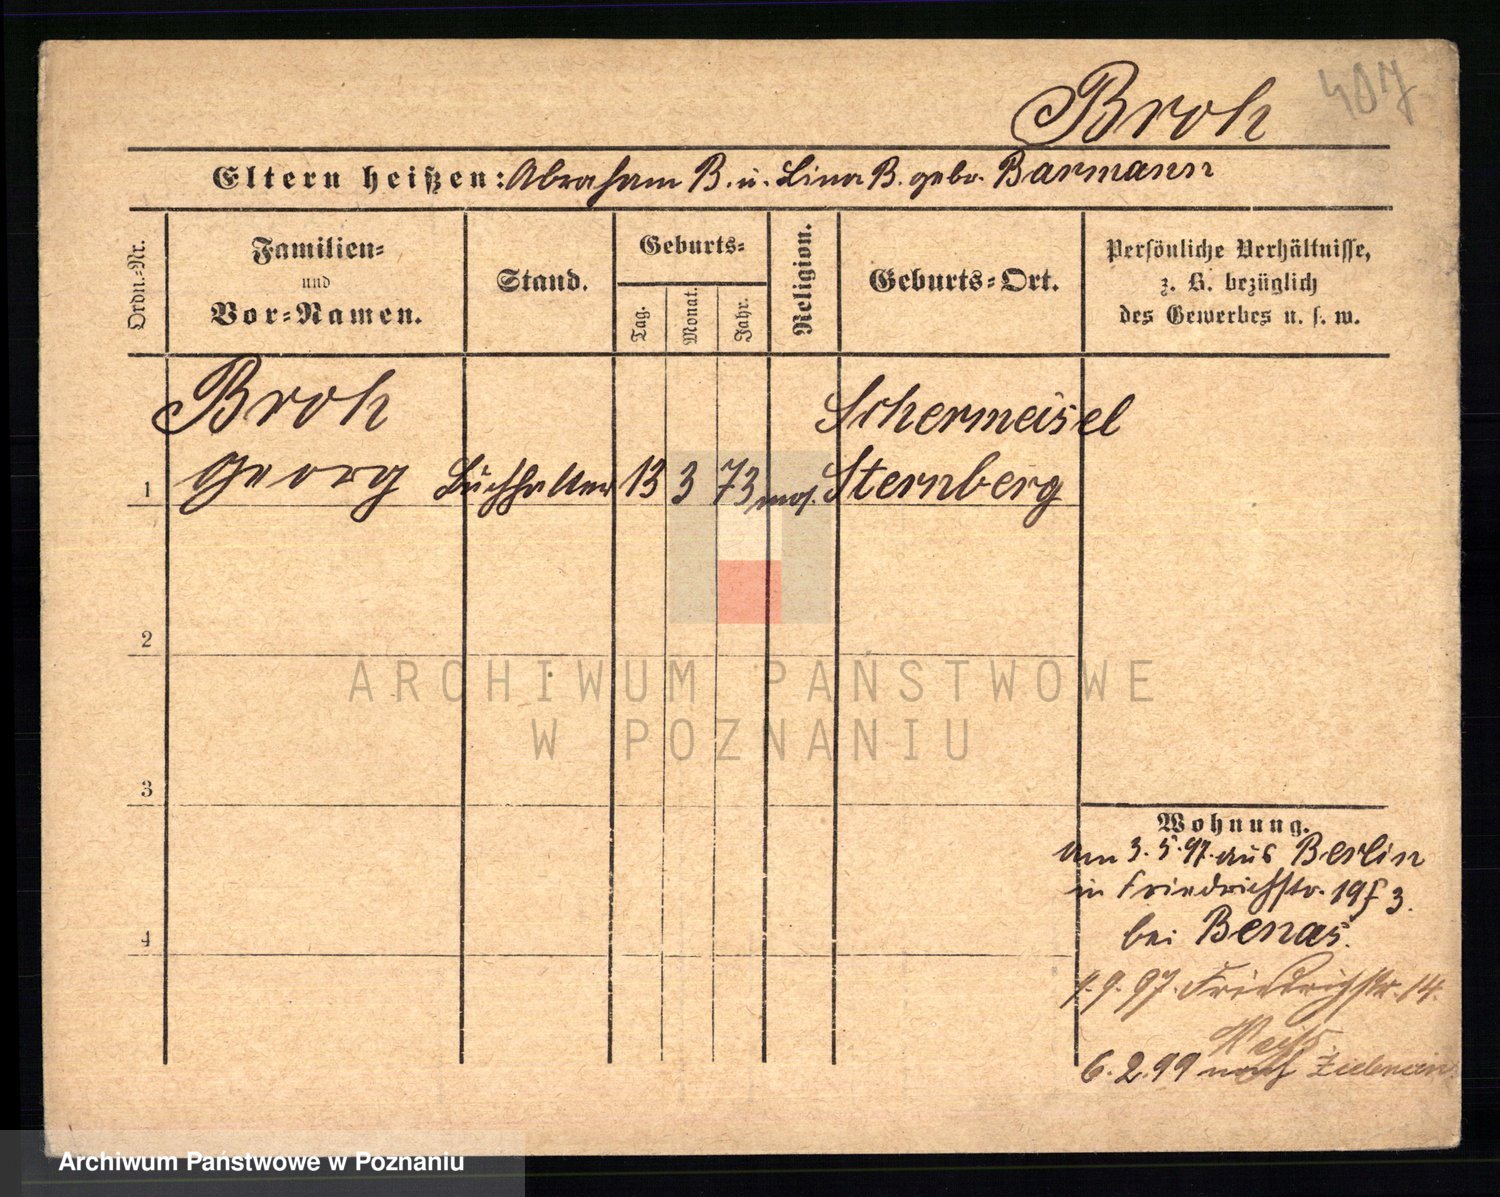 Broh 407
Eltern heißen: Abraham B. u. Lina B. gebr. Barmann
Ordn.-Nr.
Familien-
und
Vor-Namen.
Stand.
Geburts-
Tag.
Monat.
Jahr.
Religion.
Geburts-Ort.
Persönliche Verhältnisse,
z. B. bezüglich
des Gewerbes u. s. w.
Broh Schermeisel
1 Georg Buchhalter 13 3 73 mos. Sternberg
2
3
4
ARCHIWUM PAŃSTWOWE
W POZNANIU
Wohnung.
Am 3.5.97. aus Berlin
in Friedrichstr. 19 3.
bei Benas.
1.9.97. Friedrichstr. 14.
Weiß.
6.2.99 nach
Archiwum Państwowe w Poznaniu